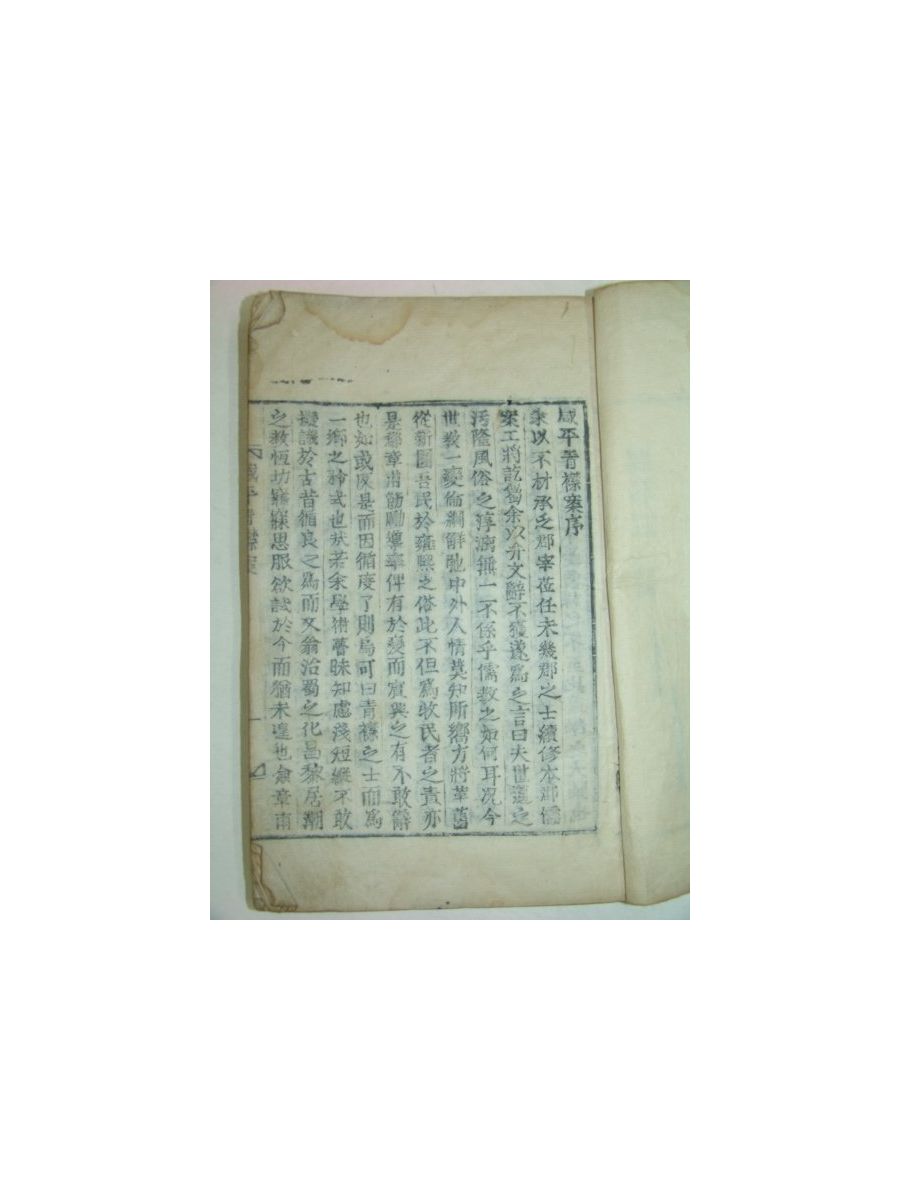 咸平青襟案序
余以不材承乏郡宰莅任未幾郡之士續修本郡儒
案工將訖囑余以弁文辭不獲遂爲之言曰夫世道之
汚隆風俗之淳漓無一不係乎儒敎之如何耳况今
世敎一變倫綱解弛中外人情莫知所嚮方將革舊
從新圖吾民於雍熙之俗此不但爲牧民者之責亦
是郡章甫飭勵導率俾有於變而賓興之有不敢辭
也如或反是而因循度了則烏可曰青襟之士而爲
一鄕之矜式也哉若余學術瞢昧知慮淺短縱不敢
擬議於古昔循良之爲而文翁治蜀之化昌黎居潮
之敎恆功寤寐思服欲試於今而猶未遑也僉章甫
咸平青襟案
一